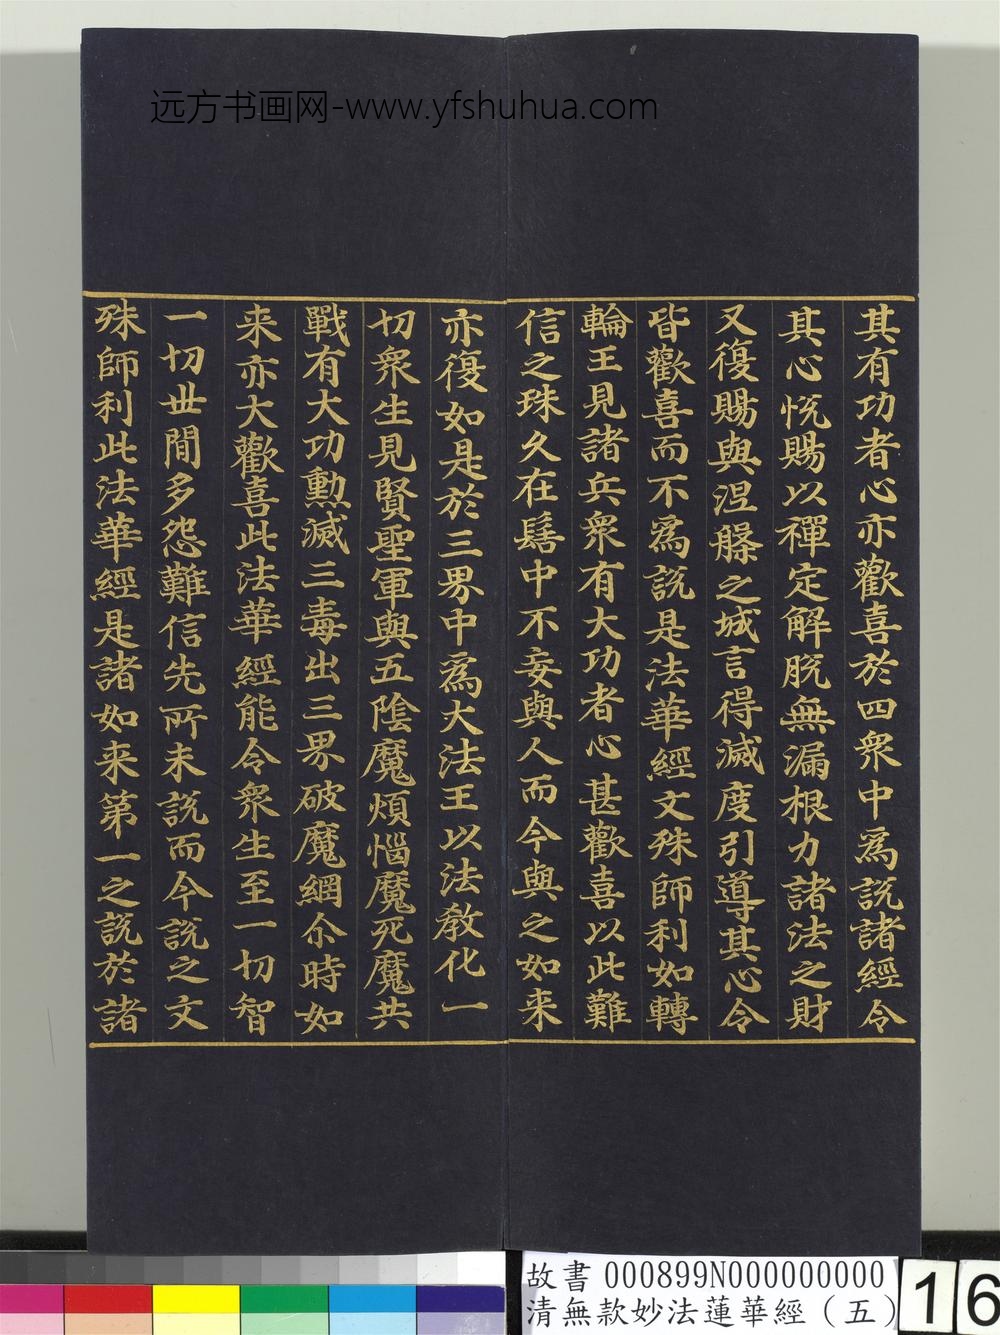 远方书画网-www.yfshuhua.com
其有功者心亦歡喜於四衆中爲説諸經令
其心悦賜以禪定解脱無漏根力諸法之財
又復賜與涅槃之城言得滅度引導其心令
皆歡喜而不爲説是法華經文殊師利如轉
輪王見諸兵衆有大功者心甚歡喜以此難
信之珠久在髻中不妄與人而今與之如来
亦復如是於三界中爲大法王以法教化一
切衆生見賢聖軍與五陰魔煩惱魔死魔共
戰有大功勳滅三毒出三界破魔網尒時如
来亦大歡喜此法華經能令衆生至一切智
一切世間多怨難信先所未説而今説之文
殊師利此法華經是諸如来第一之説於諸
故書 000899N000000000
清無款妙法蓮華經（五）
16